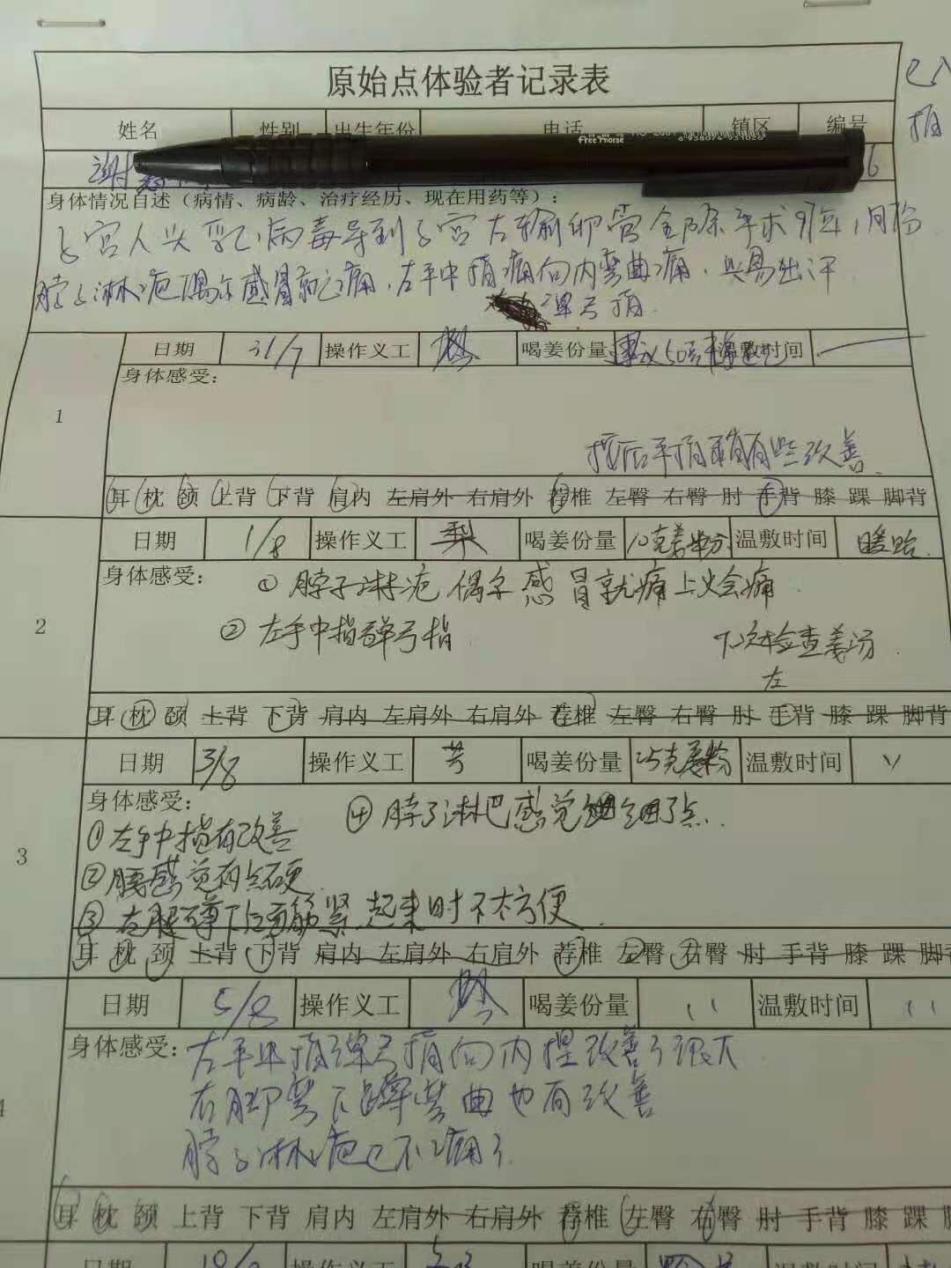 原始点体验者记录表
姓名 性别 出生年份 电话 镇区 编号
谢 6
身体情况自述（病情、病龄、治疗经历、现在用药等）：
子宫人头乳 病毒导到子宫左输卵管全除手术 年1月份
脖子淋疤偶尔感冒就痛，左手中指痛向内弯曲痛，易出汗
弹弓指
日期 31/7 操作义工 喝姜份量 建议50克 温敷时间
身体感受：
1
按后手指稍有些改善
耳 枕 颈 上背 下背 肩内 左肩外 右肩外 荐椎 左臀 右臀 肘 手背 膝 踝 脚背
日期 1/8 操作义工 梨 喝姜份量 10克姜粉 温敷时间 暖贴
身体感受：① 脖子淋疤 偶尔感冒就痛上火会痛
2
② 左手中指弹弓指
下次检查姜汤
左
耳 枕 颈 上背 下背 肩内 左肩外 右肩外 荐椎 左臀 右臀 肘 手背 膝 踝 脚背
日期 3/8 操作义工 芳 喝姜份量 25克姜粉 温敷时间 〃
身体感受：
④ 脖子淋巴感觉细了点.
① 左手中指有改善
3
② 腰感觉有点硬
③ 左腿 下 面筋紧 起来时不太方便.
耳 枕 颈 上背 下背 肩内 左肩外 右肩外 荐椎 左臀 右臀 肘 手背 膝 踝 脚背
日期 5/8 操作义工 喝姜份量 〃 温敷时间 〃
身体感受：左手中指弹弓指向内 改善了很大
右脚弯下 弯曲也有改善
4
脖子淋疤已不痛了.
耳 枕 颈 上背 下背 肩内 左肩外 右肩外 荐椎 左臀 右臀 肘 手背 膝 踝
日期 操作义工 喝姜份量 温敷时间